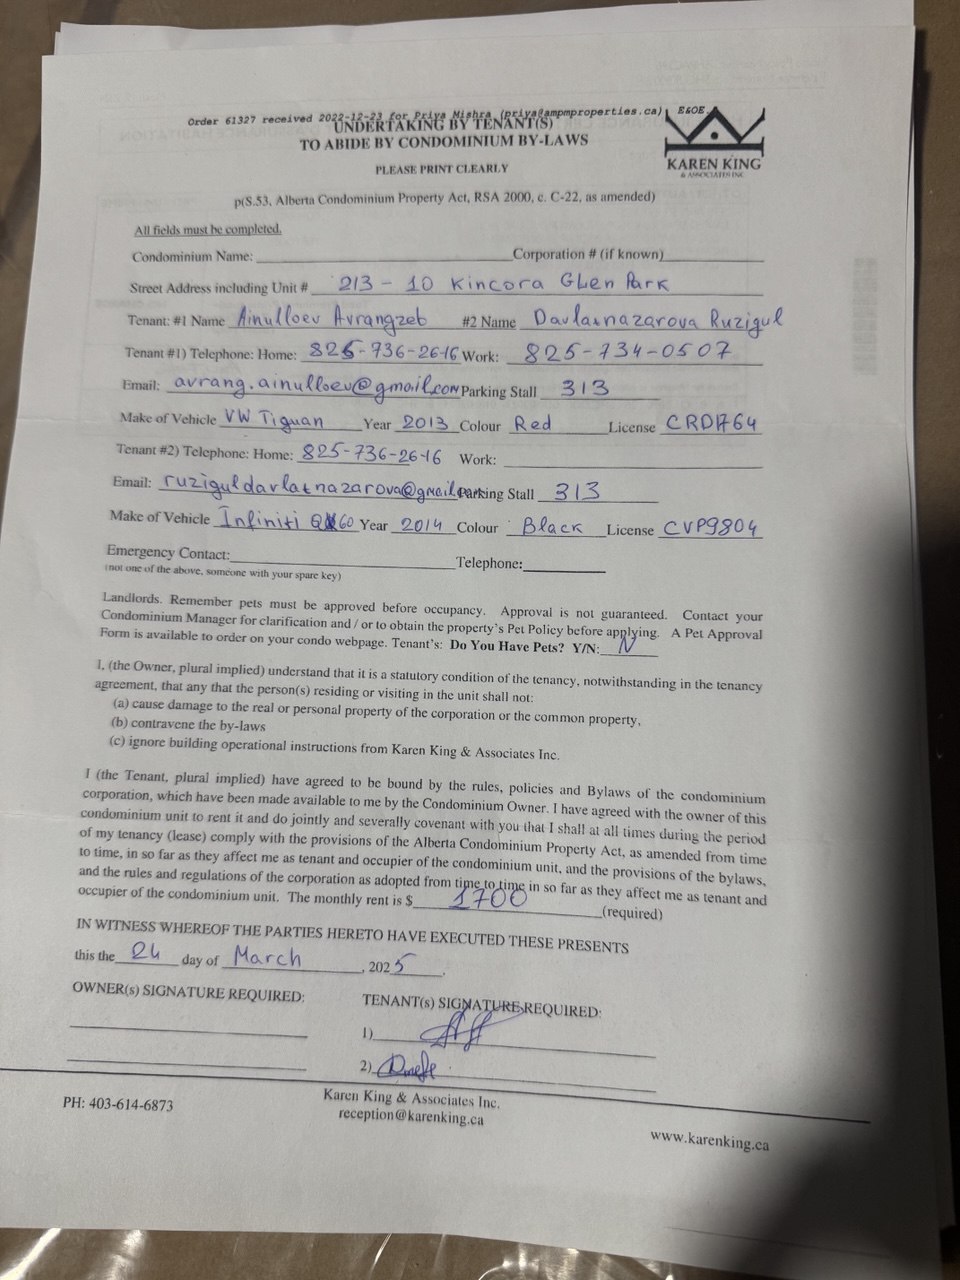 Order 61327 received 2022-12-23 for Priya Mishra (priya@ampmproperties.ca) E&OE.
UNDERTAKING BY TENANT(S)
TO ABIDE BY CONDOMINIUM BY-LAWS
KAREN KING
& ASSOCIATES INC
PLEASE PRINT CLEARLY
p(S.53, Alberta Condominium Property Act, RSA 2000, c. C-22, as amended)
All fields must be completed.
Condominium Name: Corporation # (if known)
Street Address including Unit # 213 - 10 Kincora GLen Park
Tenant: #1 Name Ainulloev Avrangzeb #2 Name Davlatnazarova Ruzigul
Tenant #1) Telephone: Home: 825-736-2616 Work: 825-734-0507
Email: avrang.ainulloev@gmail.com Parking Stall 313
Make of Vehicle VW Tiguan Year 2013 Colour Red License CRD1764
Tenant #2) Telephone: Home: 825-736-2616 Work:
Email: ruziguldavlatnazarova@gmail.com Parking Stall 313
Make of Vehicle Infiniti Q60 Year 2014 Colour Black License CVP9804
Emergency Contact: Telephone:
(not one of the above, someone with your spare key)
Landlords. Remember pets must be approved before occupancy. Approval is not guaranteed. Contact your
Condominium Manager for clarification and / or to obtain the property's Pet Policy before applying. A Pet Approval
Form is available to order on your condo webpage. Tenant's: Do You Have Pets? Y/N: N
I, (the Owner, plural implied) understand that it is a statutory condition of the tenancy, notwithstanding in the tenancy
agreement, that any that the person(s) residing or visiting in the unit shall not:
(a) cause damage to the real or personal property of the corporation or the common property,
(b) contravene the by-laws
(c) ignore building operational instructions from Karen King & Associates Inc.
I (the Tenant, plural implied) have agreed to be bound by the rules, policies and Bylaws of the condominium
corporation, which have been made available to me by the Condominium Owner. I have agreed with the owner of this
condominium unit to rent it and do jointly and severally covenant with you that I shall at all times during the period
of my tenancy (lease) comply with the provisions of the Alberta Condominium Property Act, as amended from time
to time, in so far as they affect me as tenant and occupier of the condominium unit, and the provisions of the bylaws,
and the rules and regulations of the corporation as adopted from time to time in so far as they affect me as tenant and
occupier of the condominium unit. The monthly rent is $ 1700 (required)
IN WITNESS WHEREOF THE PARTIES HERETO HAVE EXECUTED THESE PRESENTS
this the 24 day of March, 2025.
OWNER(s) SIGNATURE REQUIRED: TENANT(s) SIGNATURE REQUIRED:
1)
2)
Karen King & Associates Inc.
PH: 403-614-6873 reception@karenking.ca
www.karenking.ca